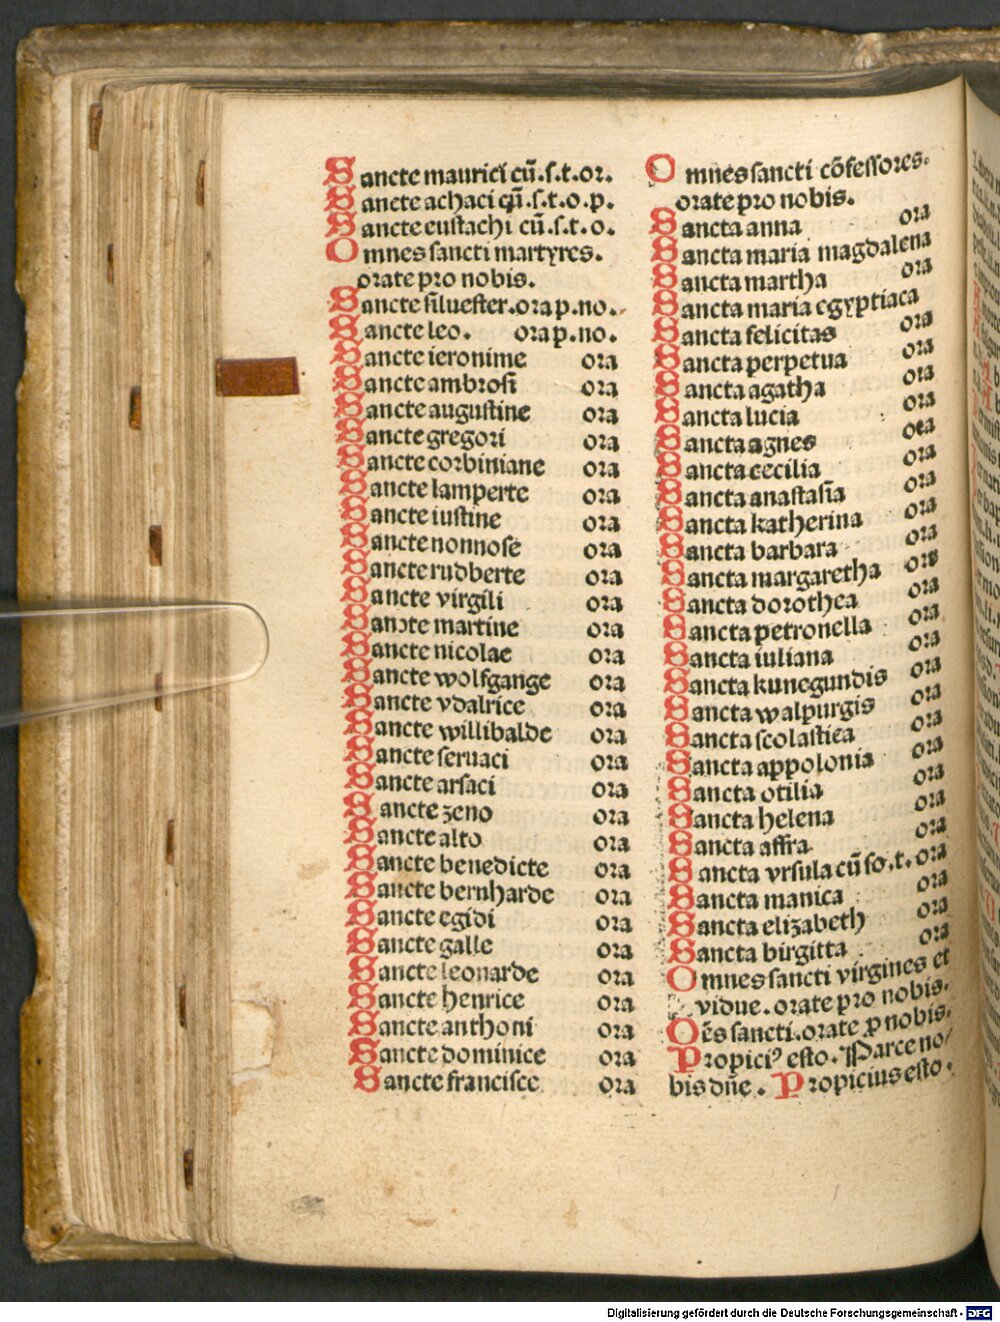 Sancte maurici cū.s.t.or.
Sancte achaci cū.s.t.o.p.
Sancte eustachi cū.s.t.o.
Omnes sancti martyres.
orate pro nobis.
Sancte siluester.ora p.no.
Sancte leo. ora p.no.
Sancte ieronime ora
Sancte ambrosi ora
Sancte augustine ora
Sancte gregori ora
Sancte corbiniane ora
Sancte lamperte ora
Sancte iustine ora
Sancte nonnose ora
Sancte rudberte ora
Sancte virgili ora
Sancte martine ora
Sancte nicolae ora
Sancte wolfgange ora
Sancte vdalrice ora
Sancte willibalde ora
Sancte seruaci ora
Sancte arsaci ora
Sancte zeno ora
Sancte alto ora
Sancte benedicte ora
Sancte bernharde ora
Sancte egidi ora
Sancte galle ora
Sancte leonarde ora
Sancte henrice ora
Sancte anthoni ora
Sancte dominice ora
Sancte francisce ora
Omnes sancti cōfessores.
orate pro nobis.
Sancta anna ora
Sancta maria magdalena
Sancta martha ora
Sancta maria egyptiaca
Sancta felicitas ora
Sancta perpetua ora
Sancta agatha ora
Sancta lucia ora
Sancta agnes ora
Sancta cecilia ora
Sancta anastasia ora
Sancta katherina ora
Sancta barbara ora
Sancta margaretha ora
Sancta dorothea ora
Sancta petronella ora
Sancta iuliana ora
Sancta kunegundis ora
Sancta walpurgis ora
Sancta scolastica ora
Sancta appolonia ora
Sancta otilia ora
Sancta helena ora
Sancta affra ora
Sancta vrsula cū so.t.ora
Sancta manica ora
Sancta elizabeth ora
Sancta birgitta ora
Omnes sancti virgines et
vidue.orate pro nobis.
Oēs sancti.orate ꝓ nobis.
Propiciꝰ esto. Parce no/
bis dn̄e. Propicius esto.
Digitalisierung gefördert durch die Deutsche Forschungsgemeinschaft - DFG